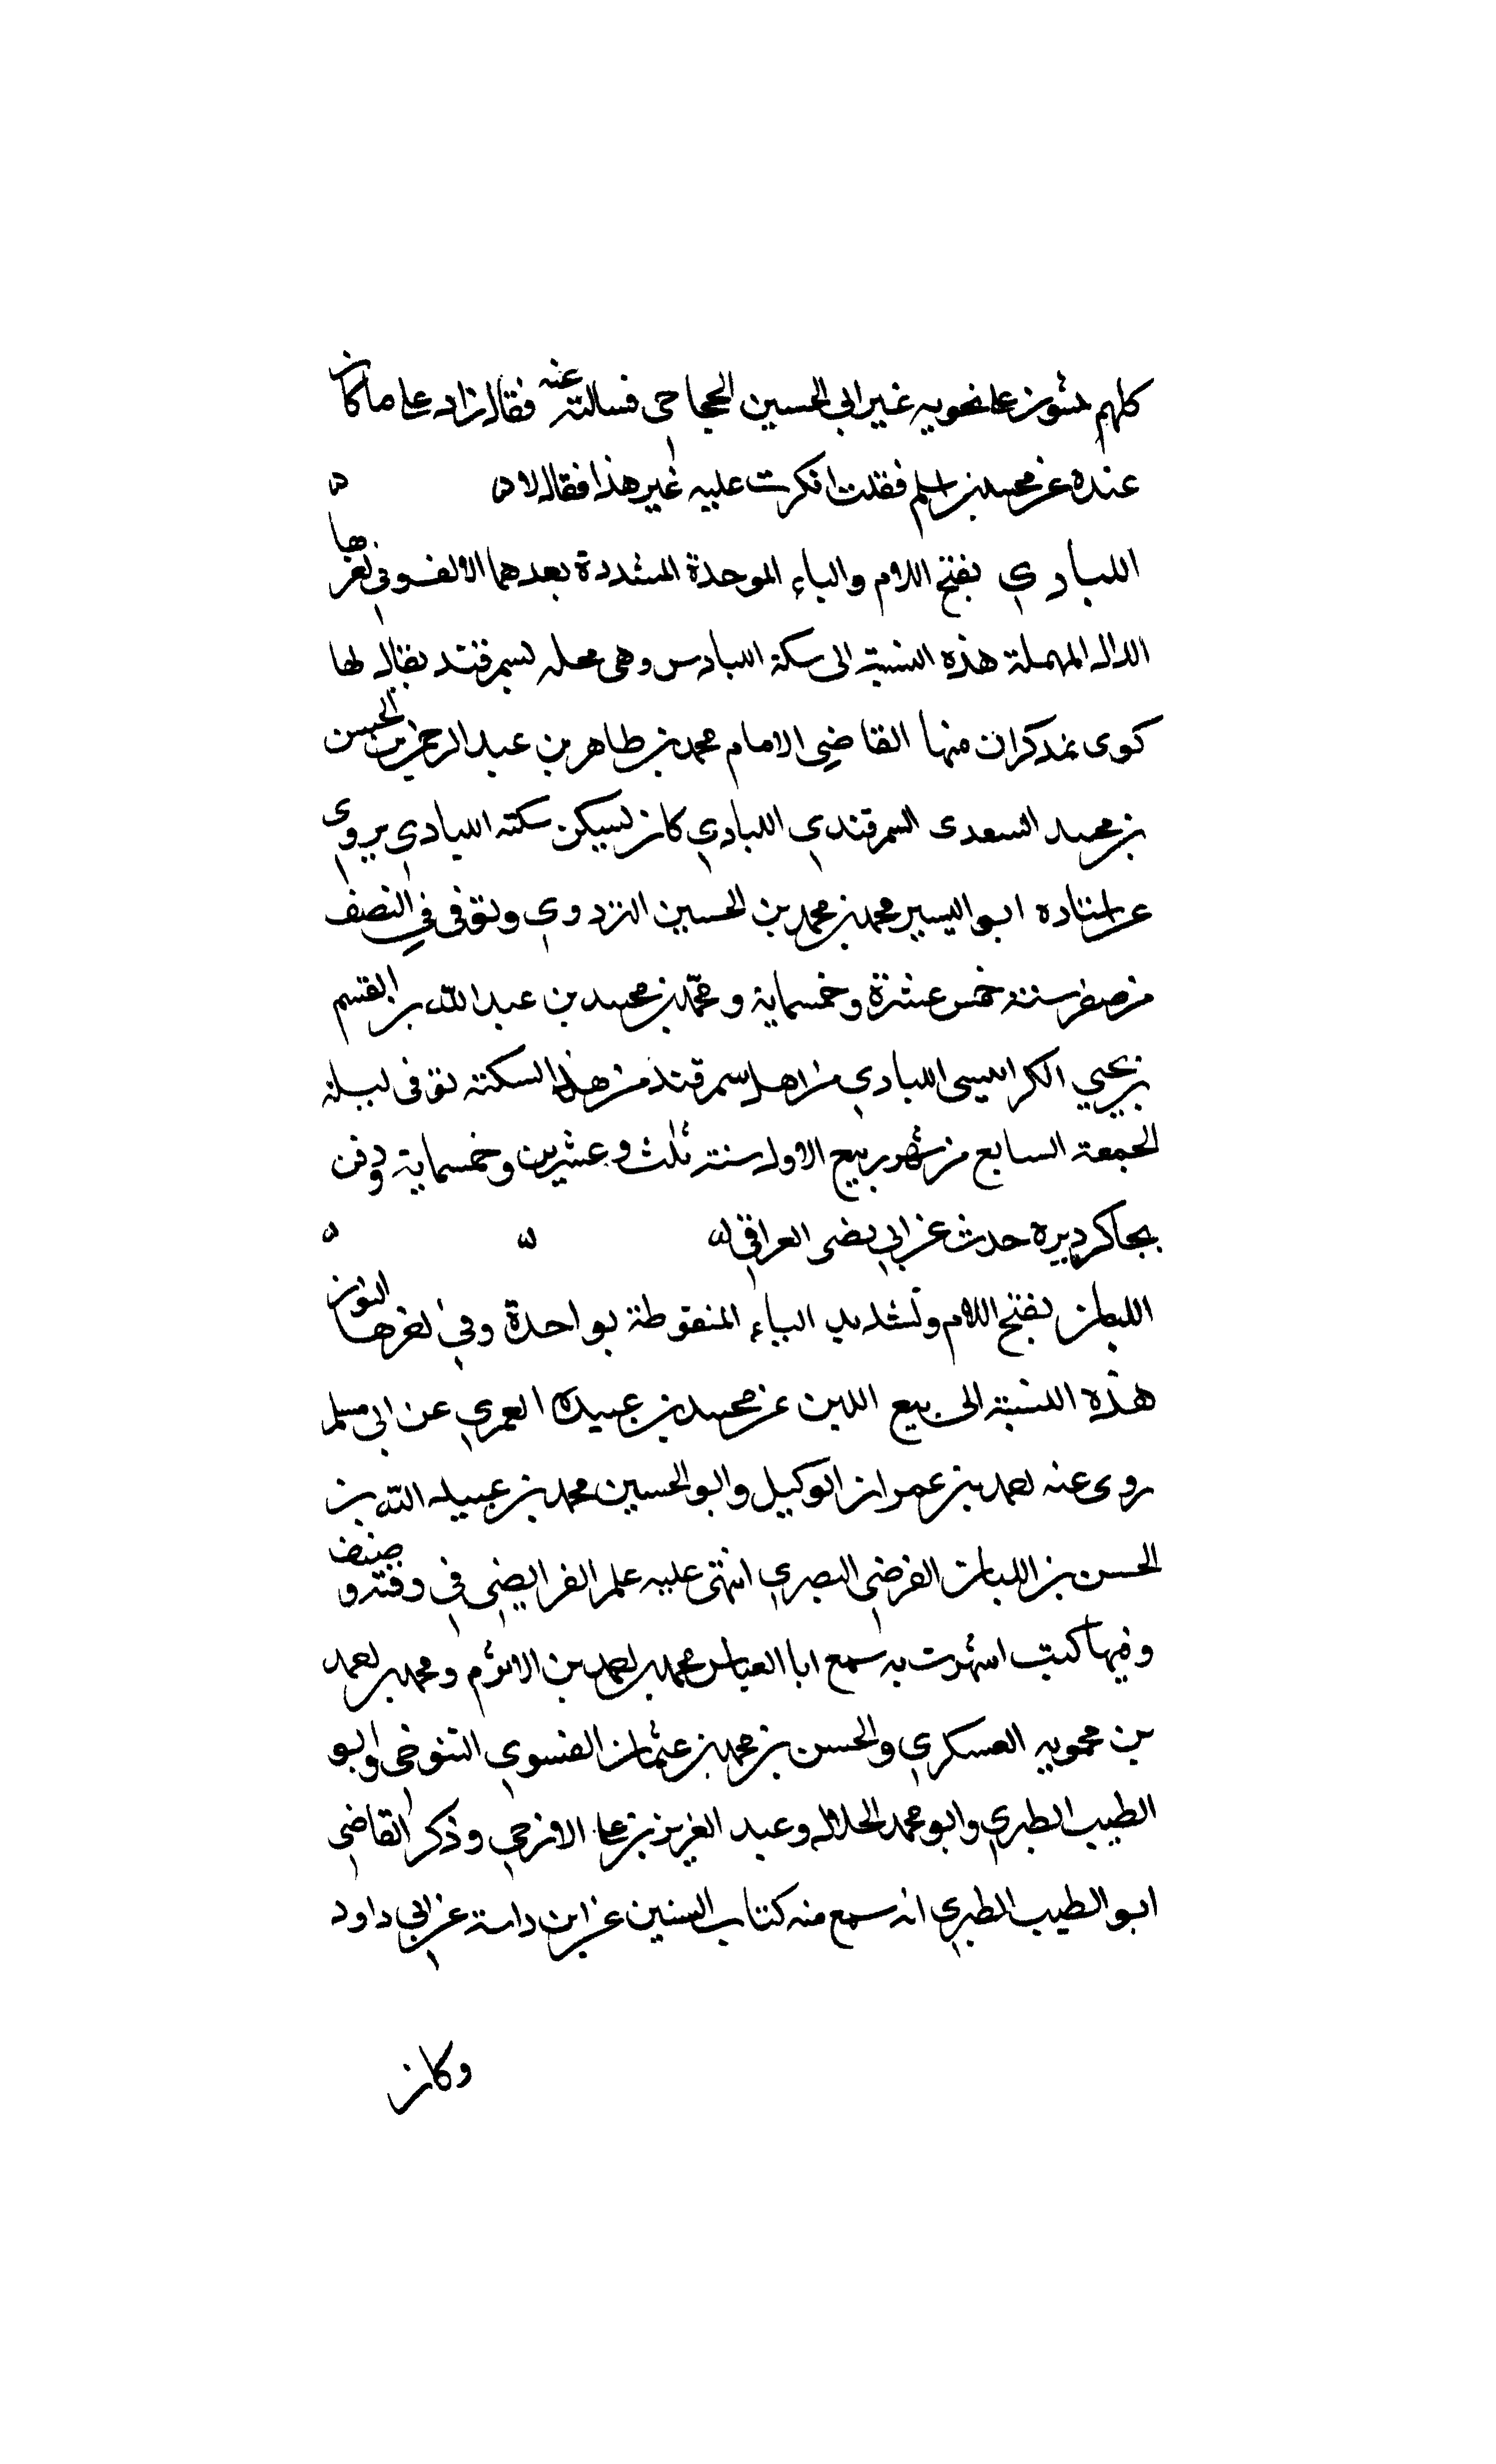 كلهم يثنون على نحويه غير ابي الحسين الحجاجي فسالته عنه فقال زاد على ما كان
عنده عن محمد بن اسلم فقلت انكرت عليه غير هذا فقال لا
اللبادي بفتح اللام والباء الموحدة المشددة بعدهما الالف وفي اخرها
الدال المهملة هذه النسبة الى سكة اللبادين وهي محله بسمرقند يقال لها
كوى نمدكران منها القاضي الامام محمد بن طاهر بن عبد الرحمن بن الحسن
بن محمد السعدي السمرقندي اللبادي كان يسكن سكة اللبادي يروي
عن استاده ابو اليسير محمد بن محمد بن الحسين البزدوي وتوفي في النصف
من صفر سنة خمس عشرة وخمسماية ومحمد بن محمد بن عبد الله بن القسم
بن يحيي الكرابيسي اللبادي من اهل سمرقند من هذا السكة توفي ليلة
الجمعة السابع من شهور ربيع الاول سنة ثلث وعشرين وخمسماية ودفن
بجاكرديره حدث عن ابي العراقي
اللبان بفتح اللام وتشديد الباء المنقوطة بواحدة وفي اخرها النون
هذه النسبة الى بيع اللبن عن محمد بن عبيده العمري عن ابي مسلم
روى عنه احمد بن عمران الوكيل وابو الحسين محمد بن عبيد الله بن
الحسن بن اللبان الفرضي البصري انتهى عليه علم الفرايضي في وقته وصنف
وفيها كتب اشهرت به سمع ابا العباس محمد بن احمد بن الاثرم ومحمد بن احمد
بن محمويه العسكري والحسن بن محمد بن عثمان الفسوي التنوخي وابو
الطيب الطبري وابو محمد الخلال وعبد العزيز بن على الازجي وذكر القاضي
ابو الطيب الطبري انه سمع منه كتاب السنين عن ابن داسة عن ابي داود
وكان